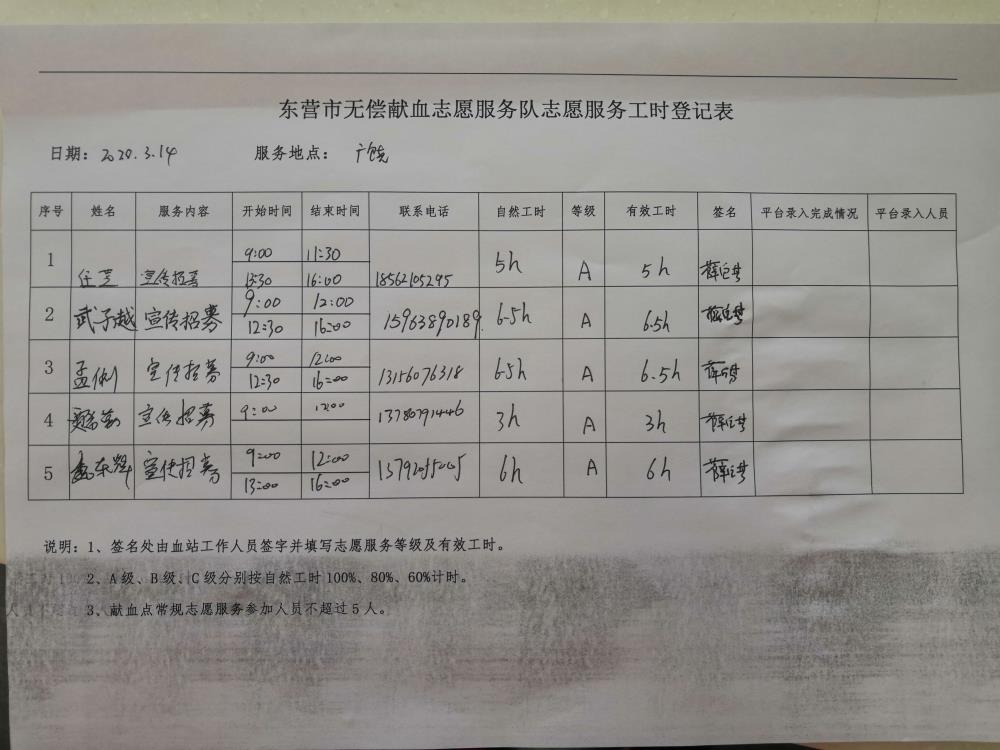 东营市无偿献血志愿服务队志愿服务工时登记表
日期：2020.3.14 服务地点：广饶
序号 姓名 服务内容 开始时间 结束时间 联系电话 自然工时 等级 有效工时 签名 平台录入完成情况 平台录入人员
1 任芝 宣传招募 9:00 11:30 18562105295 5h A 5h
13:30 16:00
2 武子越 宣传招募 9:00 12:00 15963890189 6.5h A 6.5h
12:30 16:00
3 孟俐 宣传招募 9:00 12:00 13156076318 6.5h A 6.5h
12:30 16:00
4 宣传招募 9:00 12:00 13780791446 3h A 3h
5 宣传招募 9:00 12:00 6h A 6h
13:00 16:00
说明：1、签名处由血站工作人员签字并填写志愿服务等级及有效工时。
2、A级、B级、C级分别按自然工时100%、80%、60%计时。
3、献血点常规志愿服务参加人员不超过5人。